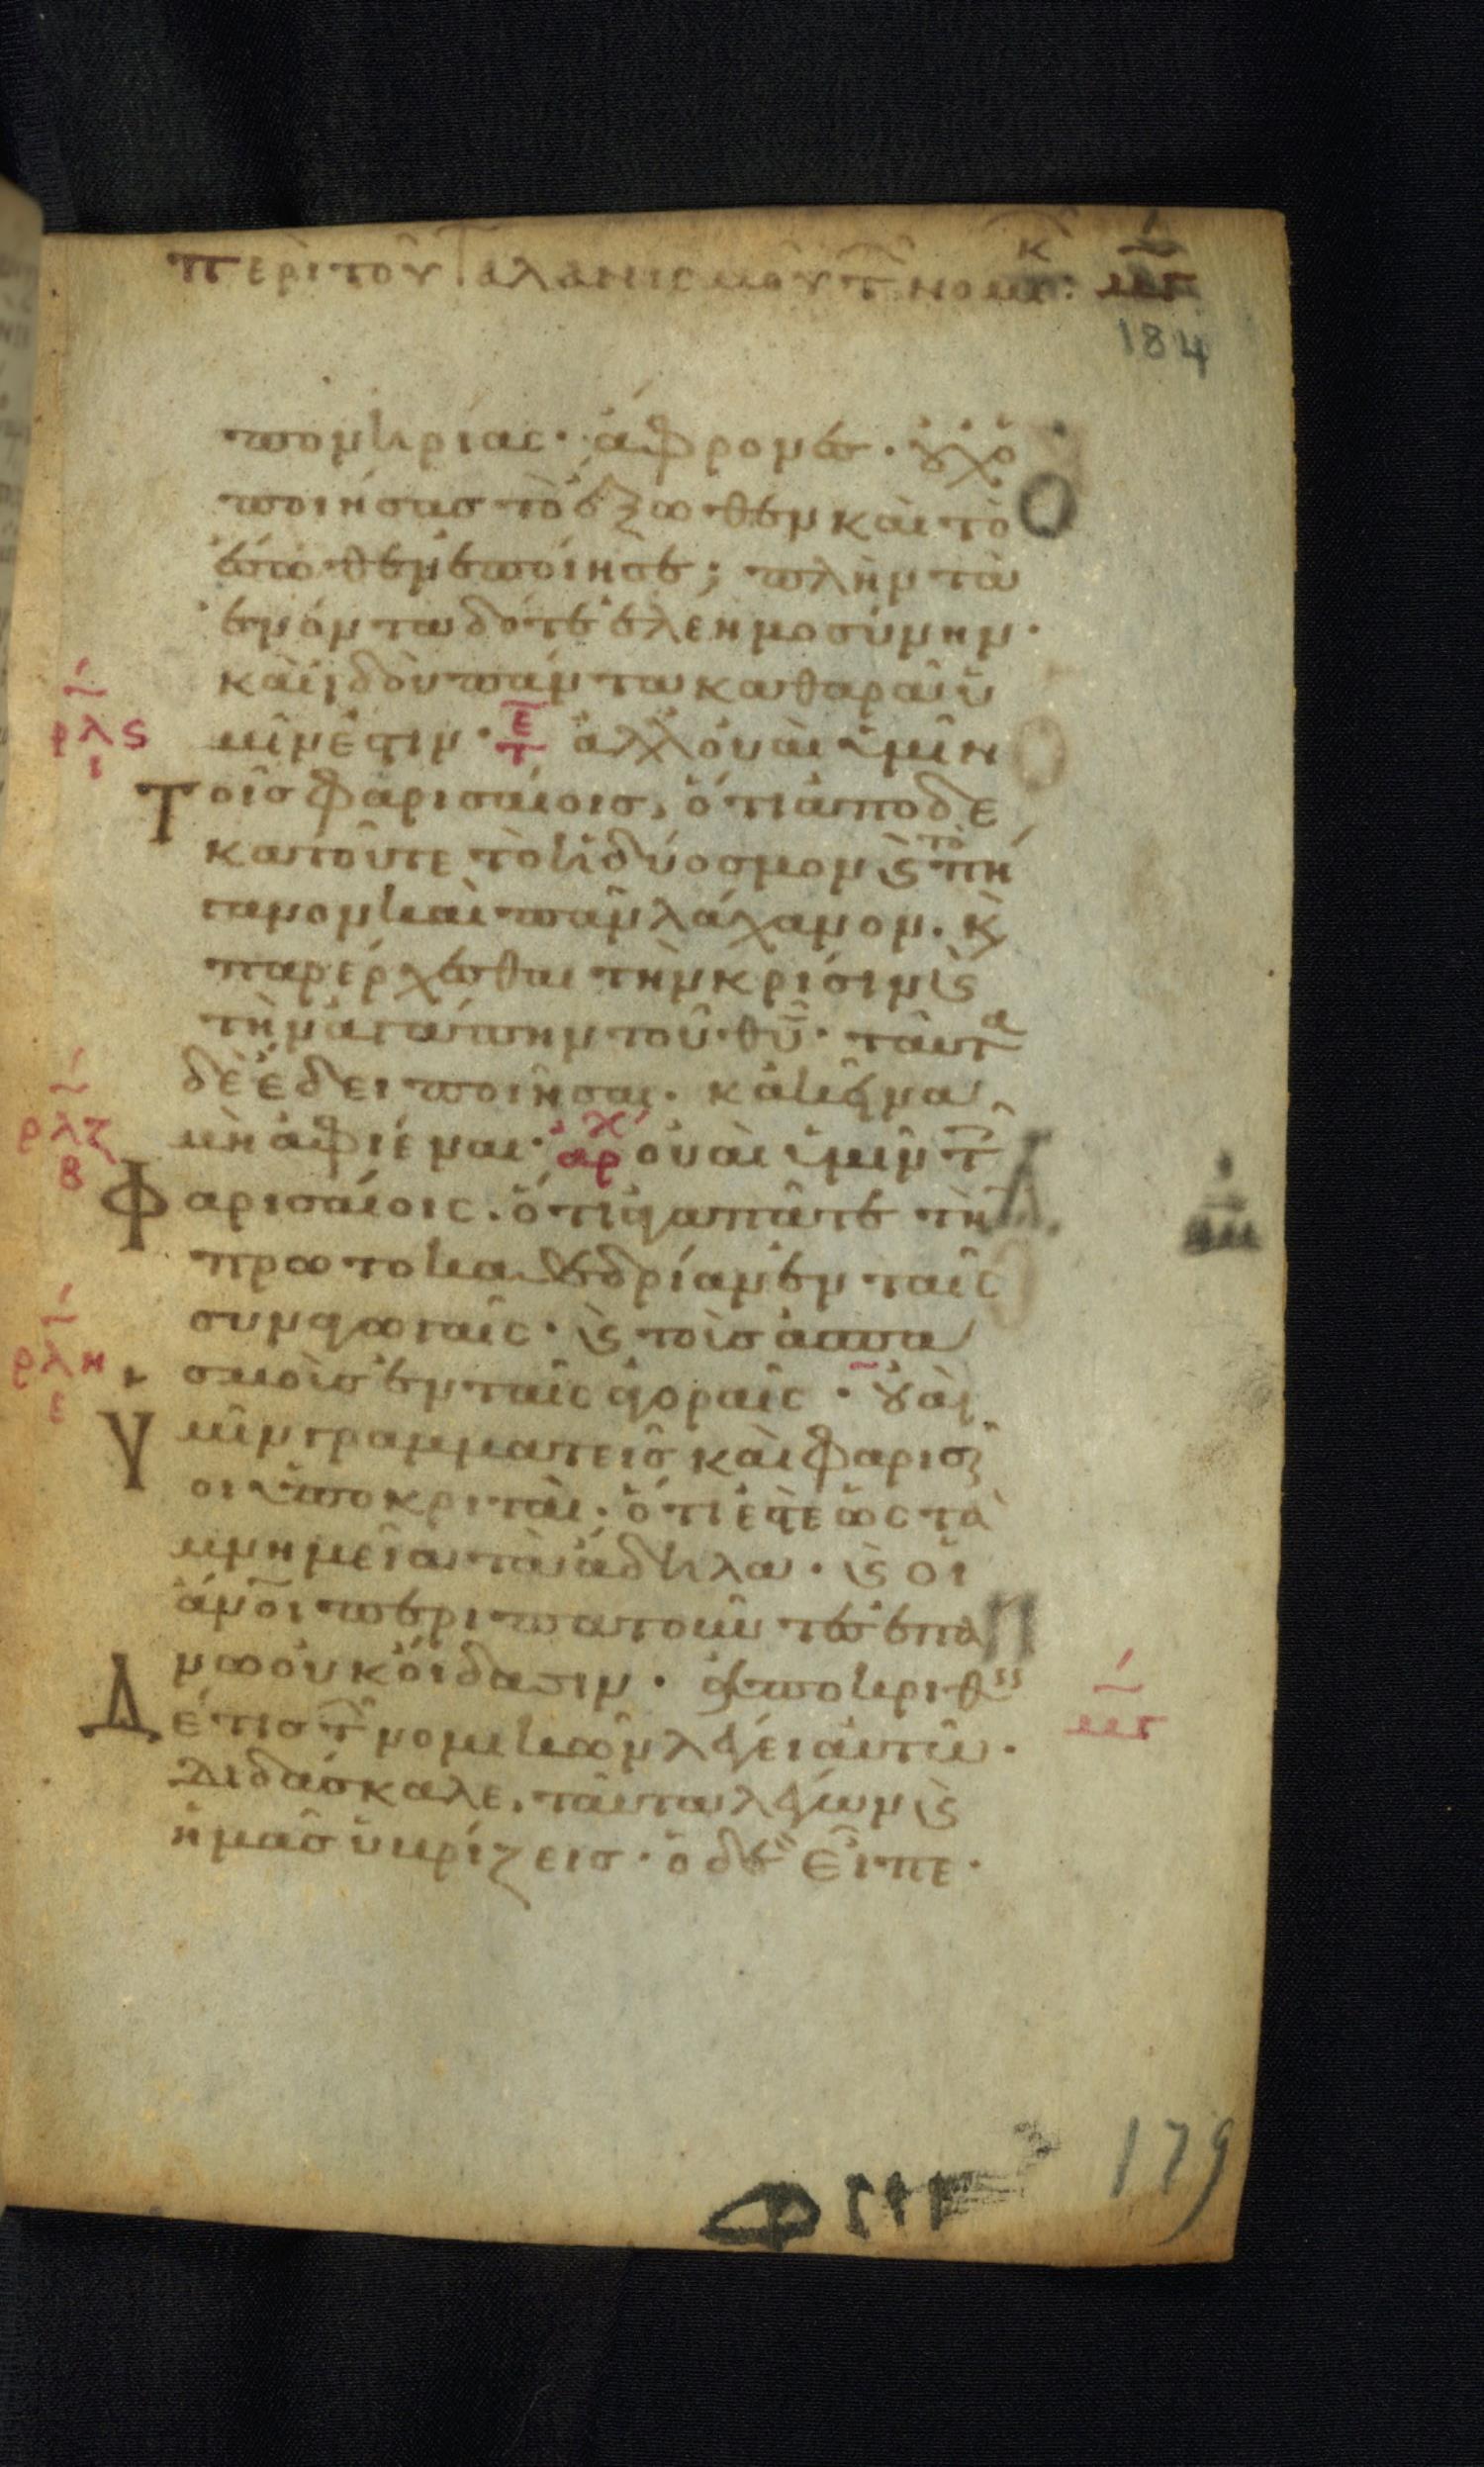 περὶ τοῦ ταλανισμοῦ τ νομικ: μγ
184
πονηρίας· ἄφρονες· οὐχ ὁ
ποιήσας τὸ ἔξωθεν καὶ τὸ
ἔσωθεν ἐποίησε; πλὴν τὰ
ἐνόντα δότε ἐλεημοσύνην·
καὶ ἰδοὺ πάντα καθαρὰ ὑ
ρλς
ι
μῖν ἐστιν· τε ἀλλ οὐαὶ ὑμῖν
Τοῖς φαρισαίοις, ὅτι ἀποδε
κατοῦτε τὸ ἡδύοσμον κ τὸ πή
γανον καὶ πᾶν λάχανον. κ
παρέρχεσθαι τὴν κρίσιν κ
τὴν ἀγάπην τοῦ θυ· ταῦτα
δὲ ἔδει ποιῆσαι. κἀκεῖνα
ρλζ
β
μὴ ἀφιέναι· αρχ οὐαὶ ὑμῖν τ
Φαρισαίοις. ὅτι ἀγαπᾶτε τὴ
πρωτοκαθεδρίαν ἐν ταῖς
συναγωγαῖς· κ τοὺς ἀσπα
ρλη
ε
σμοὺς ἐν ταῖς ἀγοραῖς· οὐαὶ
Ὑμῖν γραμματεῖς καὶ φαρισ
οι ὑποκριταί. ὅτι ἐστὲ ὡς τὰ
μνημεῖα τὰ ἄδηλα· κ οἱ
ἀνοι περιπατοῦντες ἐπά
νω οὐκ οἴδασιν· ἀποκριθεὶς
Δέ τις τ νομικῶν λέγει αὐτῶ·
μγ
Διδάσκαλε, ταῦτα λέγων κ
ἡμᾶς ὑβρίζεις· ὁ δὲ εἶπε·
179